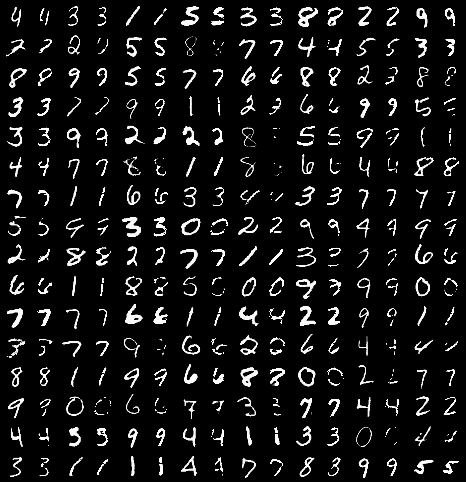 4 4 3 3 1 1 5 5 3 3 8 8 2 2 9 9
2 2 2 5 5 8 8 7 7 4 4 5 5 3 3
8 8 9 9 5 5 7 7 6 6 8 8 2 3 8 8
3 3 7 7 9 9 1 1 2 2 6 6 9 9 5
3 3 9 9 2 2 2 2 8 5 5 9 9 1 1
4 4 7 7 8 8 1 1 8 6 6 4 4 8 8
7 7 1 1 6 6 3 3 4 3 3 7 7 7 7
5 5 9 9 3 3 0 0 2 2 9 9 4 4 9 9
2 2 8 8 2 2 7 7 1 1 3 3 7 7 6 6
6 6 1 1 8 8 5 5 0 0 9 9 9 0 0
7 7 7 7 6 6 1 1 4 4 2 2 9 9 1 1
3 3 7 7 9 6 6 2 2 6 6 4 4 4
8 8 1 1 9 9 6 6 8 8 0 0 2 7 7
9 9 0 0 6 6 7 7 3 3 7 7 4 4 2 2
4 4 5 5 9 9 4 4 1 1 3 3 0 4 4
3 3 1 1 1 1 4 4 7 7 8 3 9 9 5 5